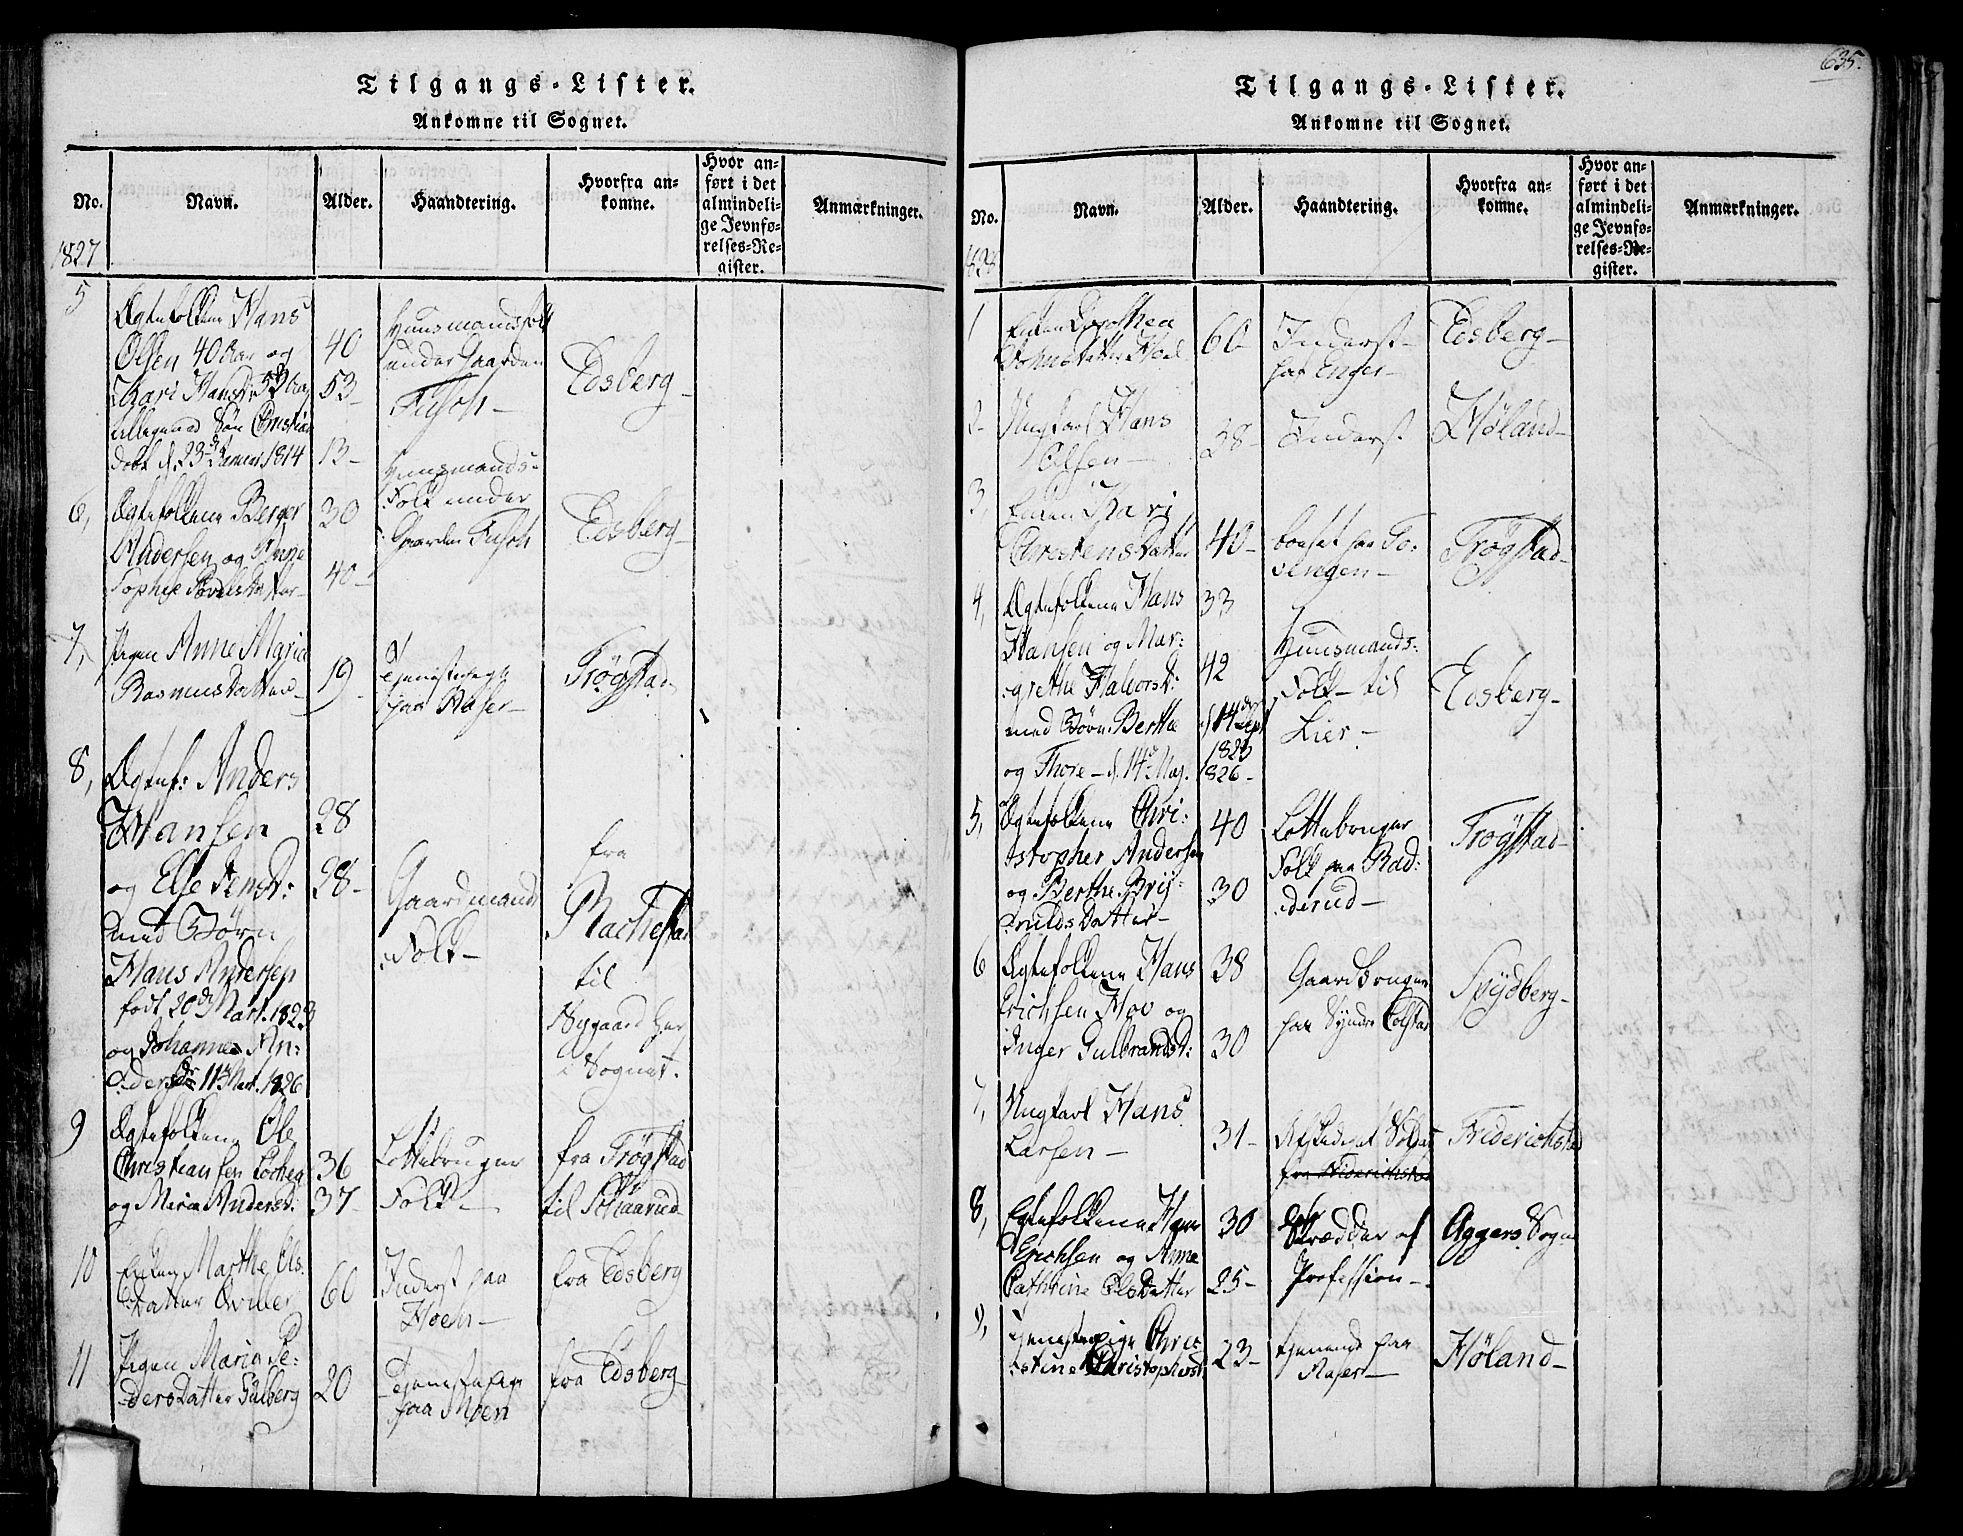 Tilgangs-Lister.
Ankomne til Sognet.
No. Navn. Alder. Haandtering. Hvorfra an-
komne. Hvor an-
ført i det
almindeli-
ge Jevnfø-
relses-Re-
gister. Anmærkninger.
1827
5 Ægtefolkene Hans
Olsen 40 Aar og 40
Kari Hansd: 53 Aar 53
Søn Christian
døbt d. 23de Januar 1814 13
Huusmandsfolk
under Gaarden
Edsberg
6, Ægtefolkene Berger 30
Andersen og Anne
Sophie Povelsdatter 40
Huusmands-
Folk under
Gaarden
Edsberg
7, Pigen Anne Maria
Rasmusdatter 19
Tjenestepige
paa Raser
Trøgstad
8, Ægtef: Anders
Hansen 28
og Else Jensd: 28
med Børn
Hans Andersen
født 20de Mart. 1823
og Johannes An:
dersen 11te Mart. 1826
Gaardmands
Folk
fra
Rachestad
til
Nygaard her
i Sognet.
9 Ægtefolkene Ole
Christiansen 36
og Maria Andersd: 37
Lottebruger
Folk
fra Trøgstad
til
10 Enken Marthe Ols
datter 60
Inderst paa
Hoen
fra Edsberg
11 Pigen Maria Pe:
dersdatter 20
Tjenestepige
paa Moen
fra Edsberg
635.
Tilgangs-Lister.
Ankomne til Sognet.
No. Navn. Alder. Haandtering. Hvorfra an-
komne. Hvor an-
ført i det
almindeli-
ge Jevnfø-
relses-Re-
gister. Anmærkninger.
1828
1 Enken Dorothea 60
Inderst
paa Enger
Edsberg
2 Ungkarl Hans
Olsen 38
Inderst
Høland
3, Enken Kari
Christensdatter 40
Trøgstad
4, Ægtefolkene Hans 33
Hansen og Mar:
grethe Halvorsd: 42
med Børn Berthe d. 14de Sept
1823
og Thore d. 14de Maj. 1826
Huusmands:
Folk til
Lier
Edsberg
5, Ægtefolkene Chri: 40
stopher Andersen
og Berthe 30
Lottebruger
Folk paa Rad:
derud
Trøgstad
6 Ægtefolkene Hans 38
Erichsen Hov og
Inger Gulbrandsd: 30
Gaardbruger
paa Syndre
Spydberg
7, Ungkarl Hans
Larsen 31
Afskediget Soldat
fra Friderichstad
Friderichstad
8, Ægtefolkene 30
Erichsen og Anne
Cathrine Olsdatter 25
Skrædder af
Profession
Aggers Sogn
9, Tjenestepige Chri
stine Christophersd: 23
tjenende paa
Raser
Høland